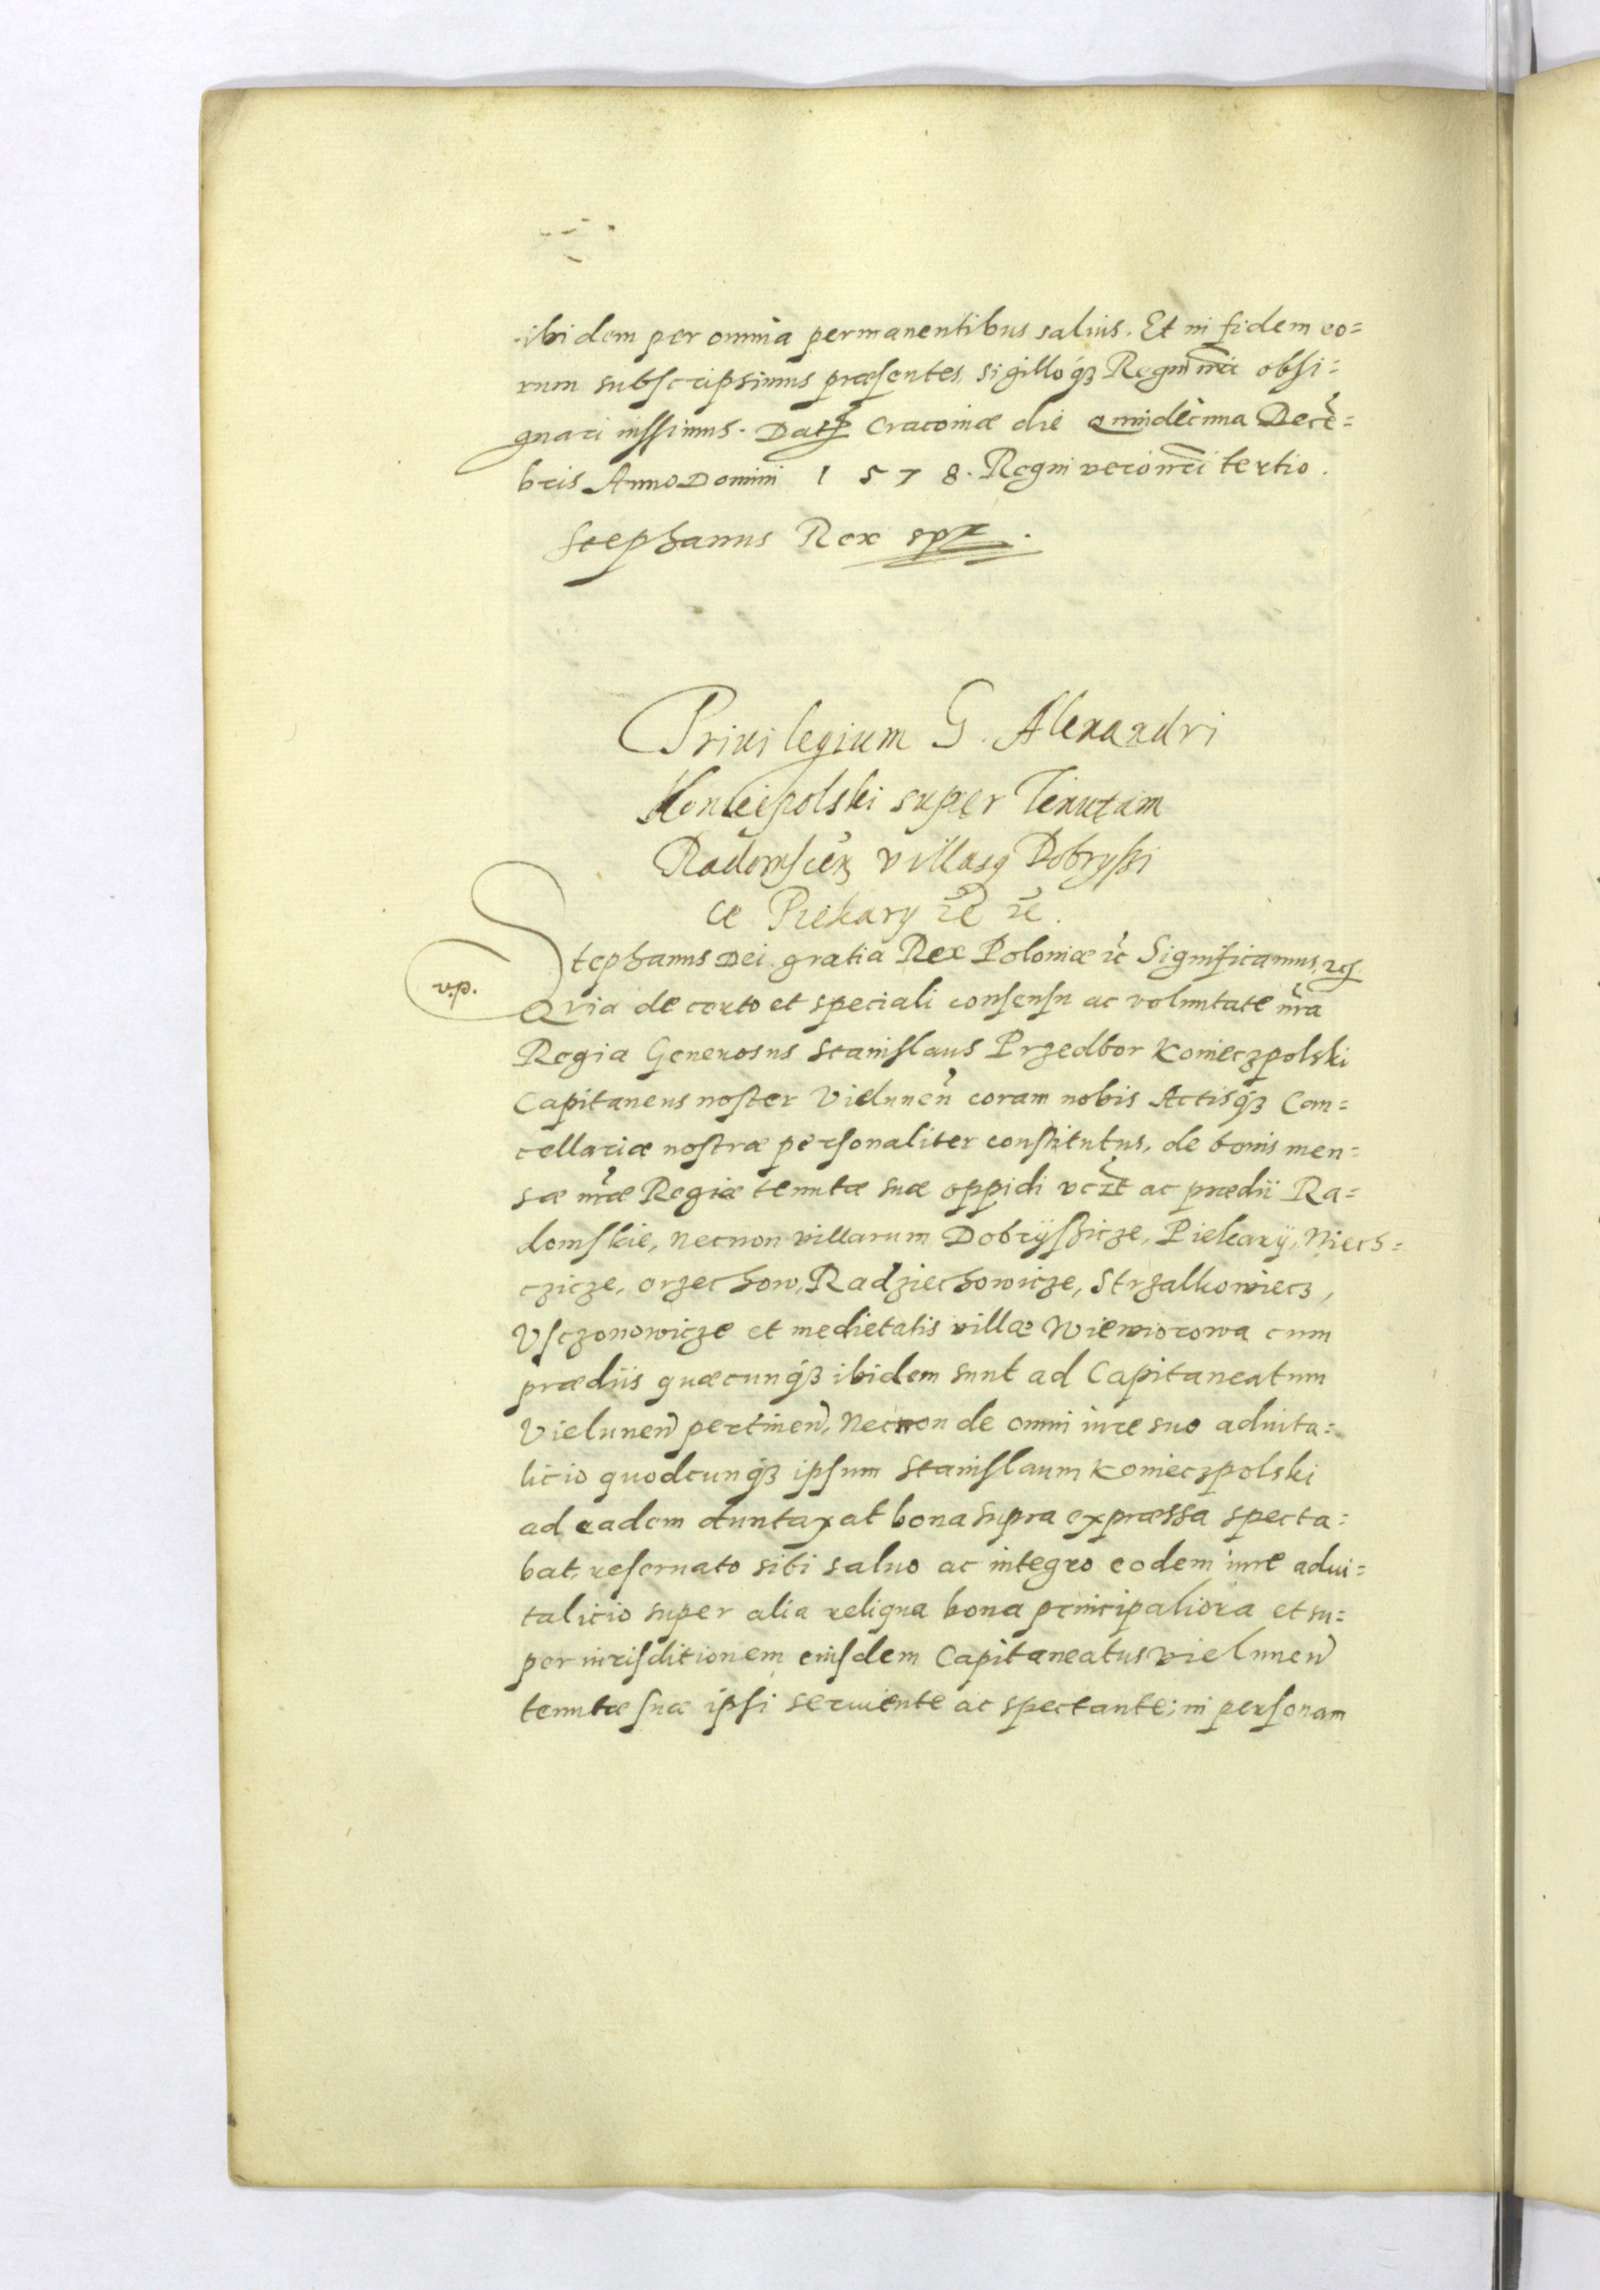 ibidem per omnia permanentibus saluis. Et in fidem eo=
rum subscripsimus præsentes, sigilloq́ꝫ Regni nr̃i obsi=
gnari iussimus. Dat̃ Cracouiæ die Quindecima Decẽ=
bris Anno Domini 1578. Regni vero nr̃i tertio.
Stephanus Rex
Priuilegium G. Alexandri
Koniecpolski super Tenutam
Radomscen̄ villasq Dobryssi
ce Piekary ꝛc̃ ꝛc̃.
Stephanus Dei gratia Rex Poloniæ ꝛc̃ Significamus, ꝛcꝭ.
Quia de certo et speciali consensu ac voluntate nr̃a
Regia Generosus Stanislaus Przedbor Konieczpolski
Capitaneus noster Vielunen̄ coram nobis Actisq́ꝫ Can=
cellariæ nostræ personaliter constitutus, de bonis men=
sæ nr̃æ Regiæ tenutæ suæ oppidi vcz̃t ac prædii Ra=
domskie, necnon villarum Dobryszicze, Piekarÿ, Niech=
czicze, Orzechow, Radziechowicze, Strzalkowiecz,
Vsczonowicze et medietatis villæ Wiewiorowa cum
prædiis quæcunq́ꝫ ibidem sunt ad Capitaneatum
Vielunen̄ pertinen̄, Necnon de omni iure suo aduita=
licio quodcunq́ꝫ ipsum Stanislaum Konieczpolski
ad eadem duntaxat bona supra expræssa specta=
bat, reseruato sibi saluo ac integro eodem iure adui=
talicio super alia reliqua bona principaliora et su=
per iurisditionem eiusdem Capitaneatus Vielunen̄
tenutæ suæ ipsi seruiente ac spectante; in personam